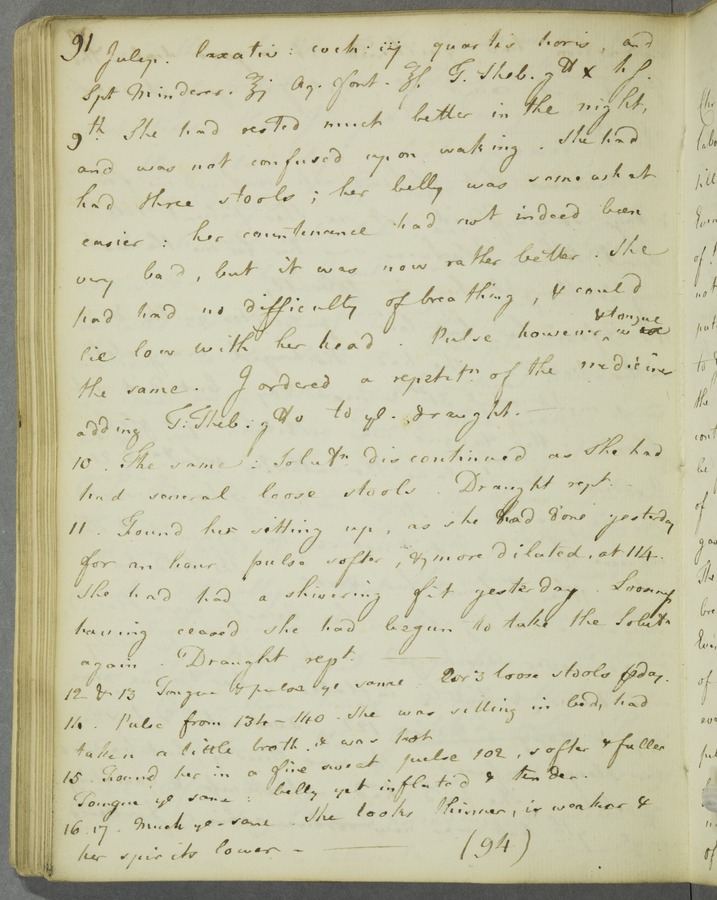 91 Julep. laxativ: coch: iij quartis horis, and
Spt Minderer. ʒj Aq. font. ℥ſs T. Theb. gtt x hſ.
9th She had rested much better in the night,
and was not confused upon waking. She had
had three stools; her belly was somewhat
easier: her countenance had not indeed been
very bad, but it was now rather better. She
had had no difficulty of breathing, & could
lie low with her head. Pulse however & tongue
the same. I ordered a repetitn. of the medicines
adding T. Theb: gtt v to ye. draught. —
10. The same: Solutn discontinued as she had
had several loose stools. Draught rept.
11. Found her sitting up, as she had done yesterday
for an hour pulse softer, & more dilated, at 114.
She had had a shivering fit yesterday. Loosness
having ceased she had begun to take the Solutn
again. Draught rept.
12 & 13 Tongue & pulse ye same 2 or 3 loose stools pday.
14. Pulse from 134 – 140. She was sitting in bed, had
taken a little broth & was hot
15. Found her in a fine sweat pulse 102, softer & fuller
Tongue ye same: belly yet inflated & tender.
16. 17. Much ye same. She looks thinner, is weaker &
her spirits lower – (94)